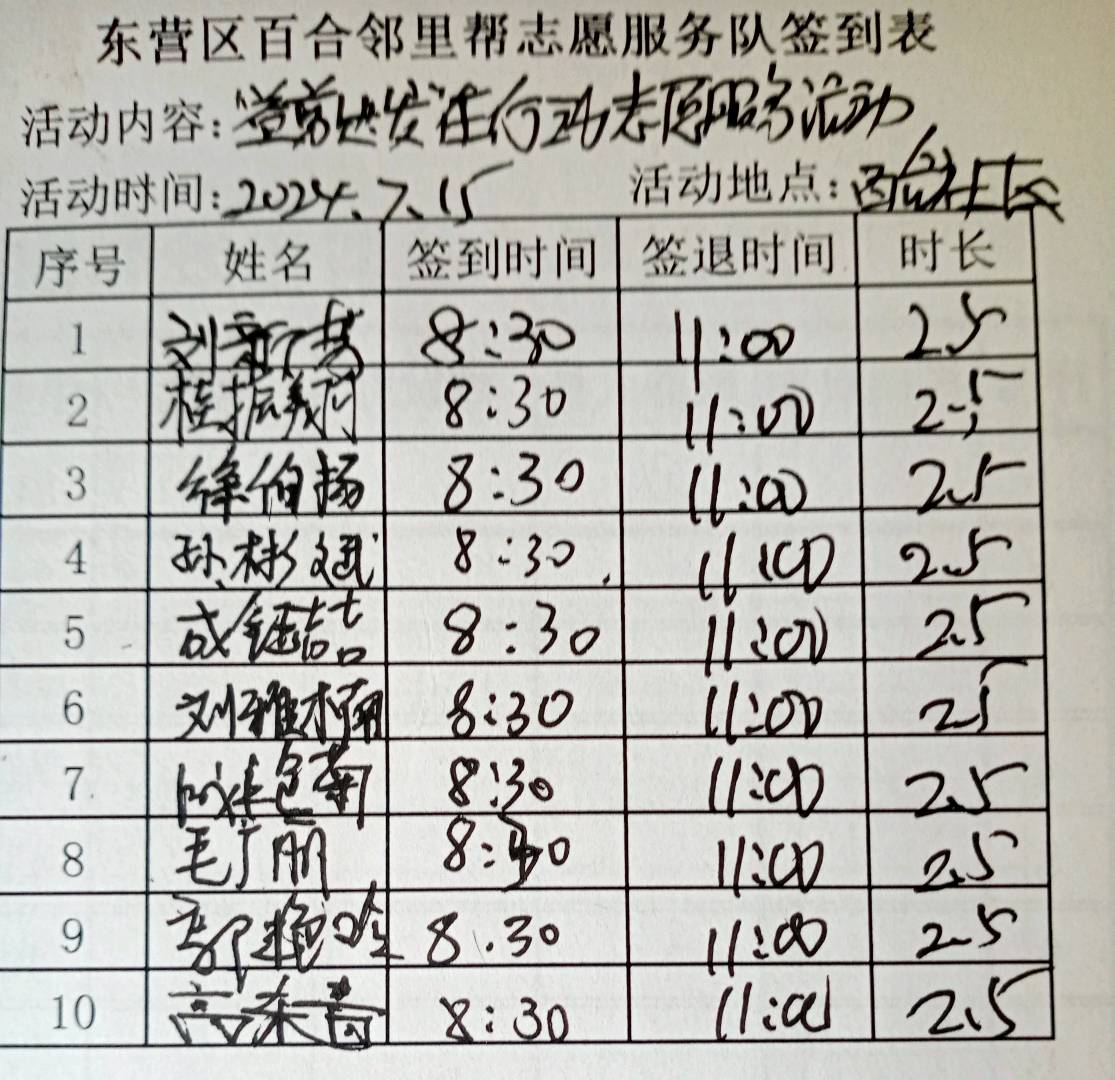 东营区百合邻里帮志愿服务队签到表
活动内容: 在行动志愿服务活动
活动时间: 2024.7.15 活动地点: 百合社区
序号 姓名 签到时间 签退时间 时长
1 刘 8:30 11:00 2.5
2 桂振 8:30 11:00 2.5
3 徐伯扬 8:30 11:00 2.5
4 孙彬斌 8:30 11:00 2.5
5 成继喆 8:30 11:00 2.5
6 刘雅楠 8:30 11:00 2.5
7 8:30 11:00 2.5
8 毛 8:30 11:00 2.5
9 郭 8:30 11:00 2.5
10 高 8:30 11:00 2.5